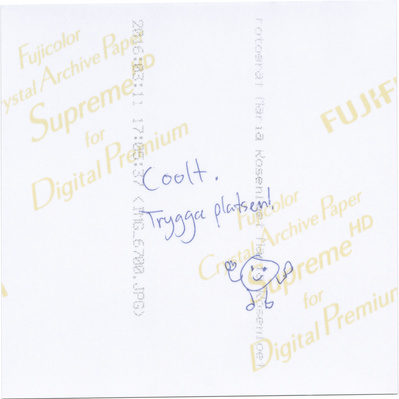 Fujicolor
Crystal Archive Paper
Supreme HD
for
Digital Premium
2016:03:11 17:05:37 <IMG_6700.JPG>
FUJIF
Coolt.
Trygga platsen!
Fujicolor
Crystal Archive Paper
Supreme HD
for
Digital Premium